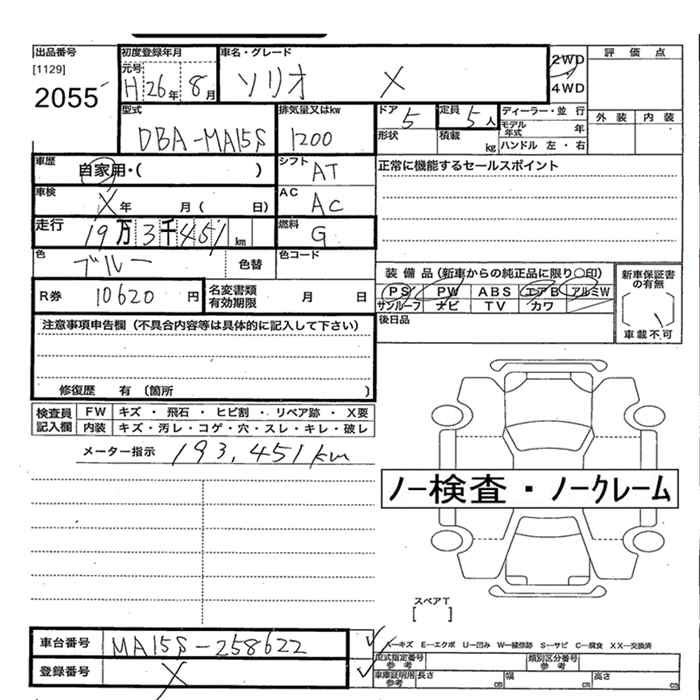 出品番号 初度登録年月 車名・グレード 評価点
[1129] 元号 2WD
2055 H 26年 8月 ソリオ X 4WD
外装 内装
型式 排気量又はkw ドア 5 定員 5人 ディーラー・並行
DBA-MA15S 1200 形状 積載 kg モデル年式 年
ハンドル 左・右
車歴 自家用・( ) シフト AT 正常に機能するセールスポイント
車検 X 年 月( 日) AC AC
走行 19万3千451km 燃料 G
色 ブルー 色替 色コード
装備品(新車からの純正品に限り○印) 新車保証書の有無
R券 10620円 名変書類有効期限 月 日 PS PW ABS エアB アルミW
サンルーフ ナビ TV カワ
注意事項申告欄(不具合内容等は具体的に記入して下さい) 後日品 [ ] 車載不可
修復歴 有 (箇所 )
検査員記入欄 FW キズ・飛石・ヒビ割・リペア跡・X要
内装 キズ・汚レ・コゲ・穴・スレ・キレ・破レ
メーター指示 193,451km
ノー検査・ノークレーム
スペアT
[ ]
車台番号 MA15S-258622 ✓ A-キズ E-エクボ U-凹み W-補修跡 S-サビ C-腐食 XX-交換済
型式指定番号参考 類別区分番号参考
登録番号 X ✓ 車庫証明用参考 長さ cm 幅 cm 高さ cm